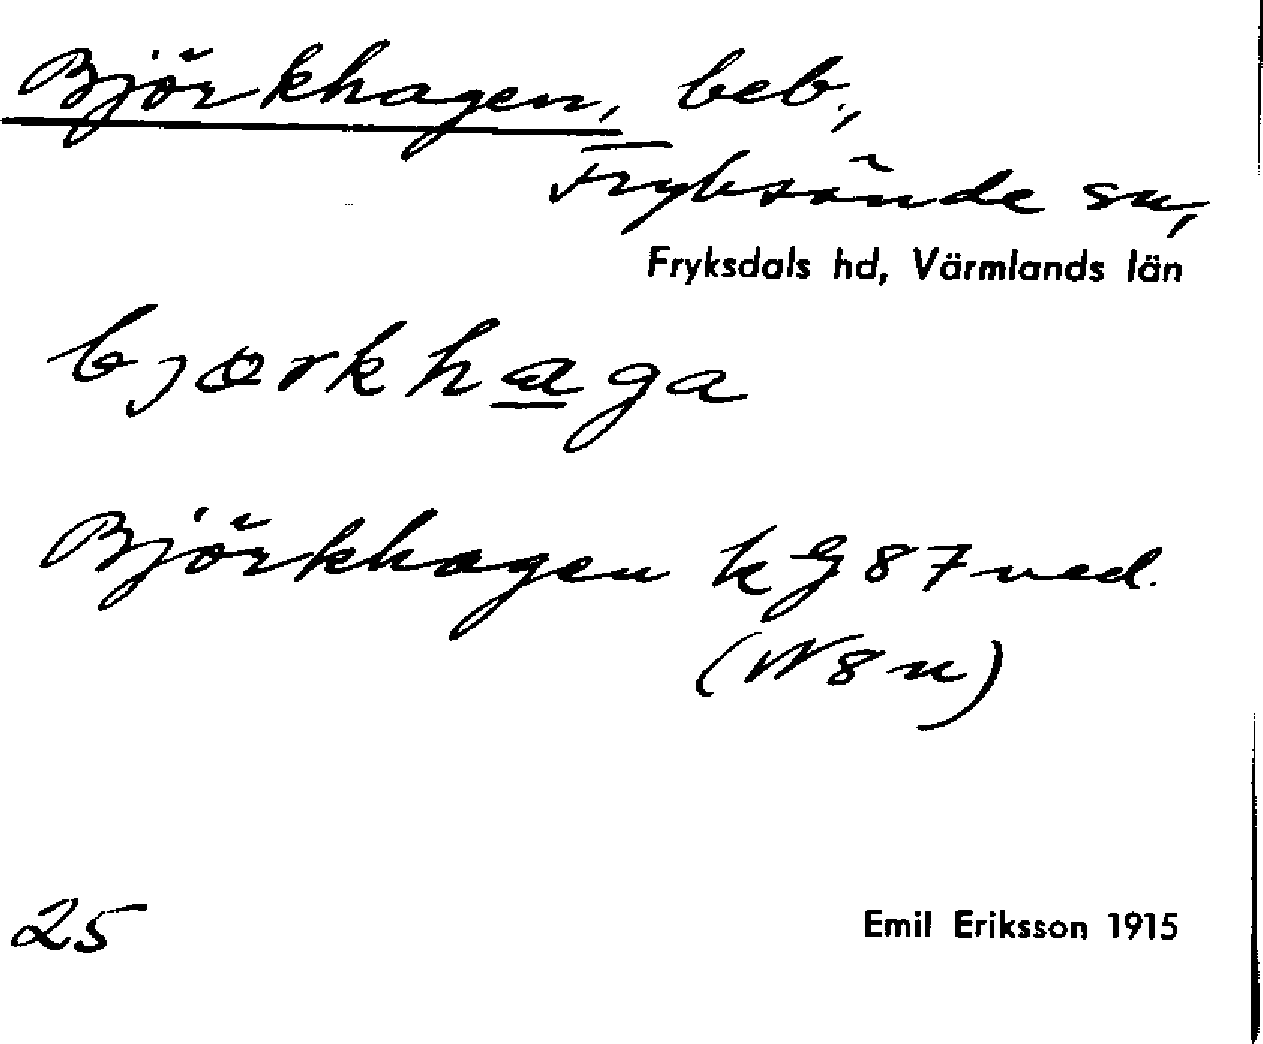 Björkhagen, beb.,
Fryksände sn,
Fryksdals hd, Värmlands län
bjørkhaga
Björkhagen k G 87 ned.
(N 8 u)
25
Emil Eriksson 1915